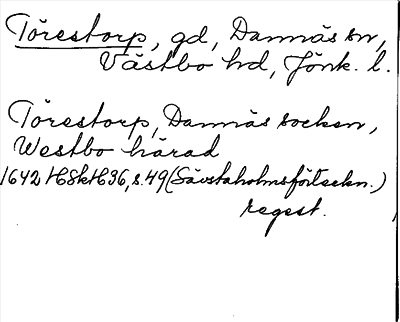 Törestorp, gd, Dannäs sn,
Västbo hd, Jönk. l.
Törestorp, Dannäs socken,
Westbo härad
1642 HSkH36, s. 49 (Sävstaholmsförteckn.)
regest.